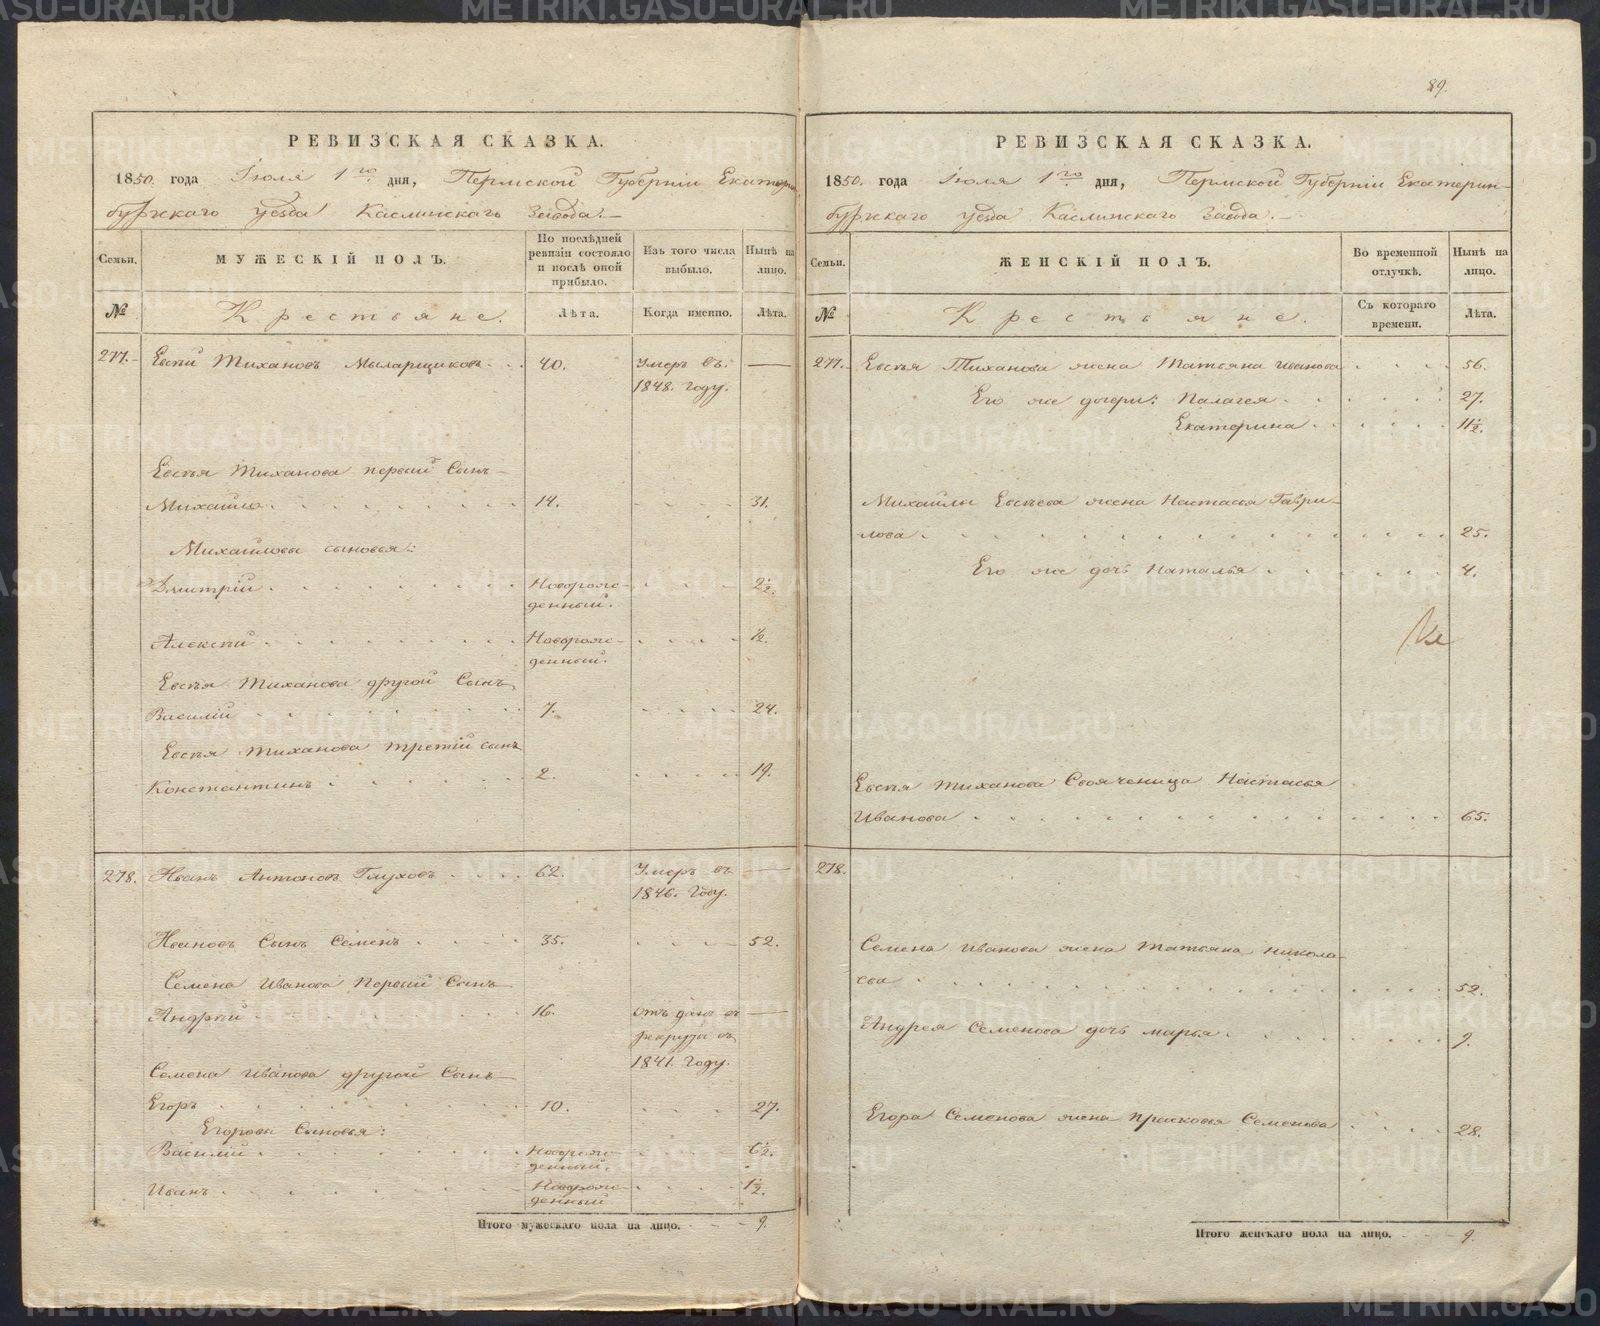 РЕВИЗСКАЯ СКАЗКА.
1850. года Іюля 1го. дня, Пермской Губерніи Екатерин
бургскаго уѣзда Каслинскаго завода.
Семьи.
МУЖЕСКІЙ ПОЛЪ.
По послѣдней ревизіи состояло и послѣ оной прибыло.
Изъ того числа выбыло.
Нынѣ на лицо.
№
Крестьяне.
Лѣта.
Когда именно.
Лѣта.
277. Евсѣй Тихановъ Мыларщиковъ 40. Умеръ въ —
1848. году.
Евсѣя Тиханова первый Сынъ
Михайло 14. 31.
Михайловы сыновья:
Дмитрій Новорож- 2 1/2.
денный.
Алексѣй Новорож- 1/2.
денный.
Евсѣя Тиханова другой Сынъ
Василій 7. 24.
Евсѣя Тиханова третій сынъ
Константинъ 2. 19.
278. Иванъ Антоновъ Глуховъ 62. Умеръ въ —
1846. Году.
Ивановъ Сынъ Семенъ 35. 52.
Семена Иванова Первый Сынъ
Андрей 16. отъ данъ въ —
рекруты въ
1841. году.
Семена Иванова другой Сынъ
Егоръ 10. 27.
Егоровы Сыновья:
Василій Новорож- 6 1/2.
денный.
Иванъ Новорож- 1 1/2.
денный
Итого мужескаго пола на лицо. 9.
89.
РЕВИЗСКАЯ СКАЗКА.
1850. года Іюля 1го. дня, Пермской Губерніи Екатерин-
бургскаго уѣзда Каслинскаго завода.
Семьи.
ЖЕНСКІЙ ПОЛЪ.
Во временной отлучкѣ.
Нынѣ на лицо.
№
Крестьяне.
Съ котораго времени.
Лѣта.
277. Евсѣя Тиханова жена Татьяна Иванова 56.
Его же дочери: Палагея 27.
Екатерина 11 1/2.
Михайлы Евсѣева жена Настасья Гаври-
лова 25.
Его же дочь Наталья 4.
Евсѣя Тиханова Свояченица Настасья
Иванова 65.
278.
Семена Иванова жена Татьяна Никола-
ева 52.
Андрея Семенова дочь марья 9.
Егора Семенова жена Прасковья Семенова 28.
Итого женскаго пола на лицо. 9.
METRIKI.GASO-URAL.RU